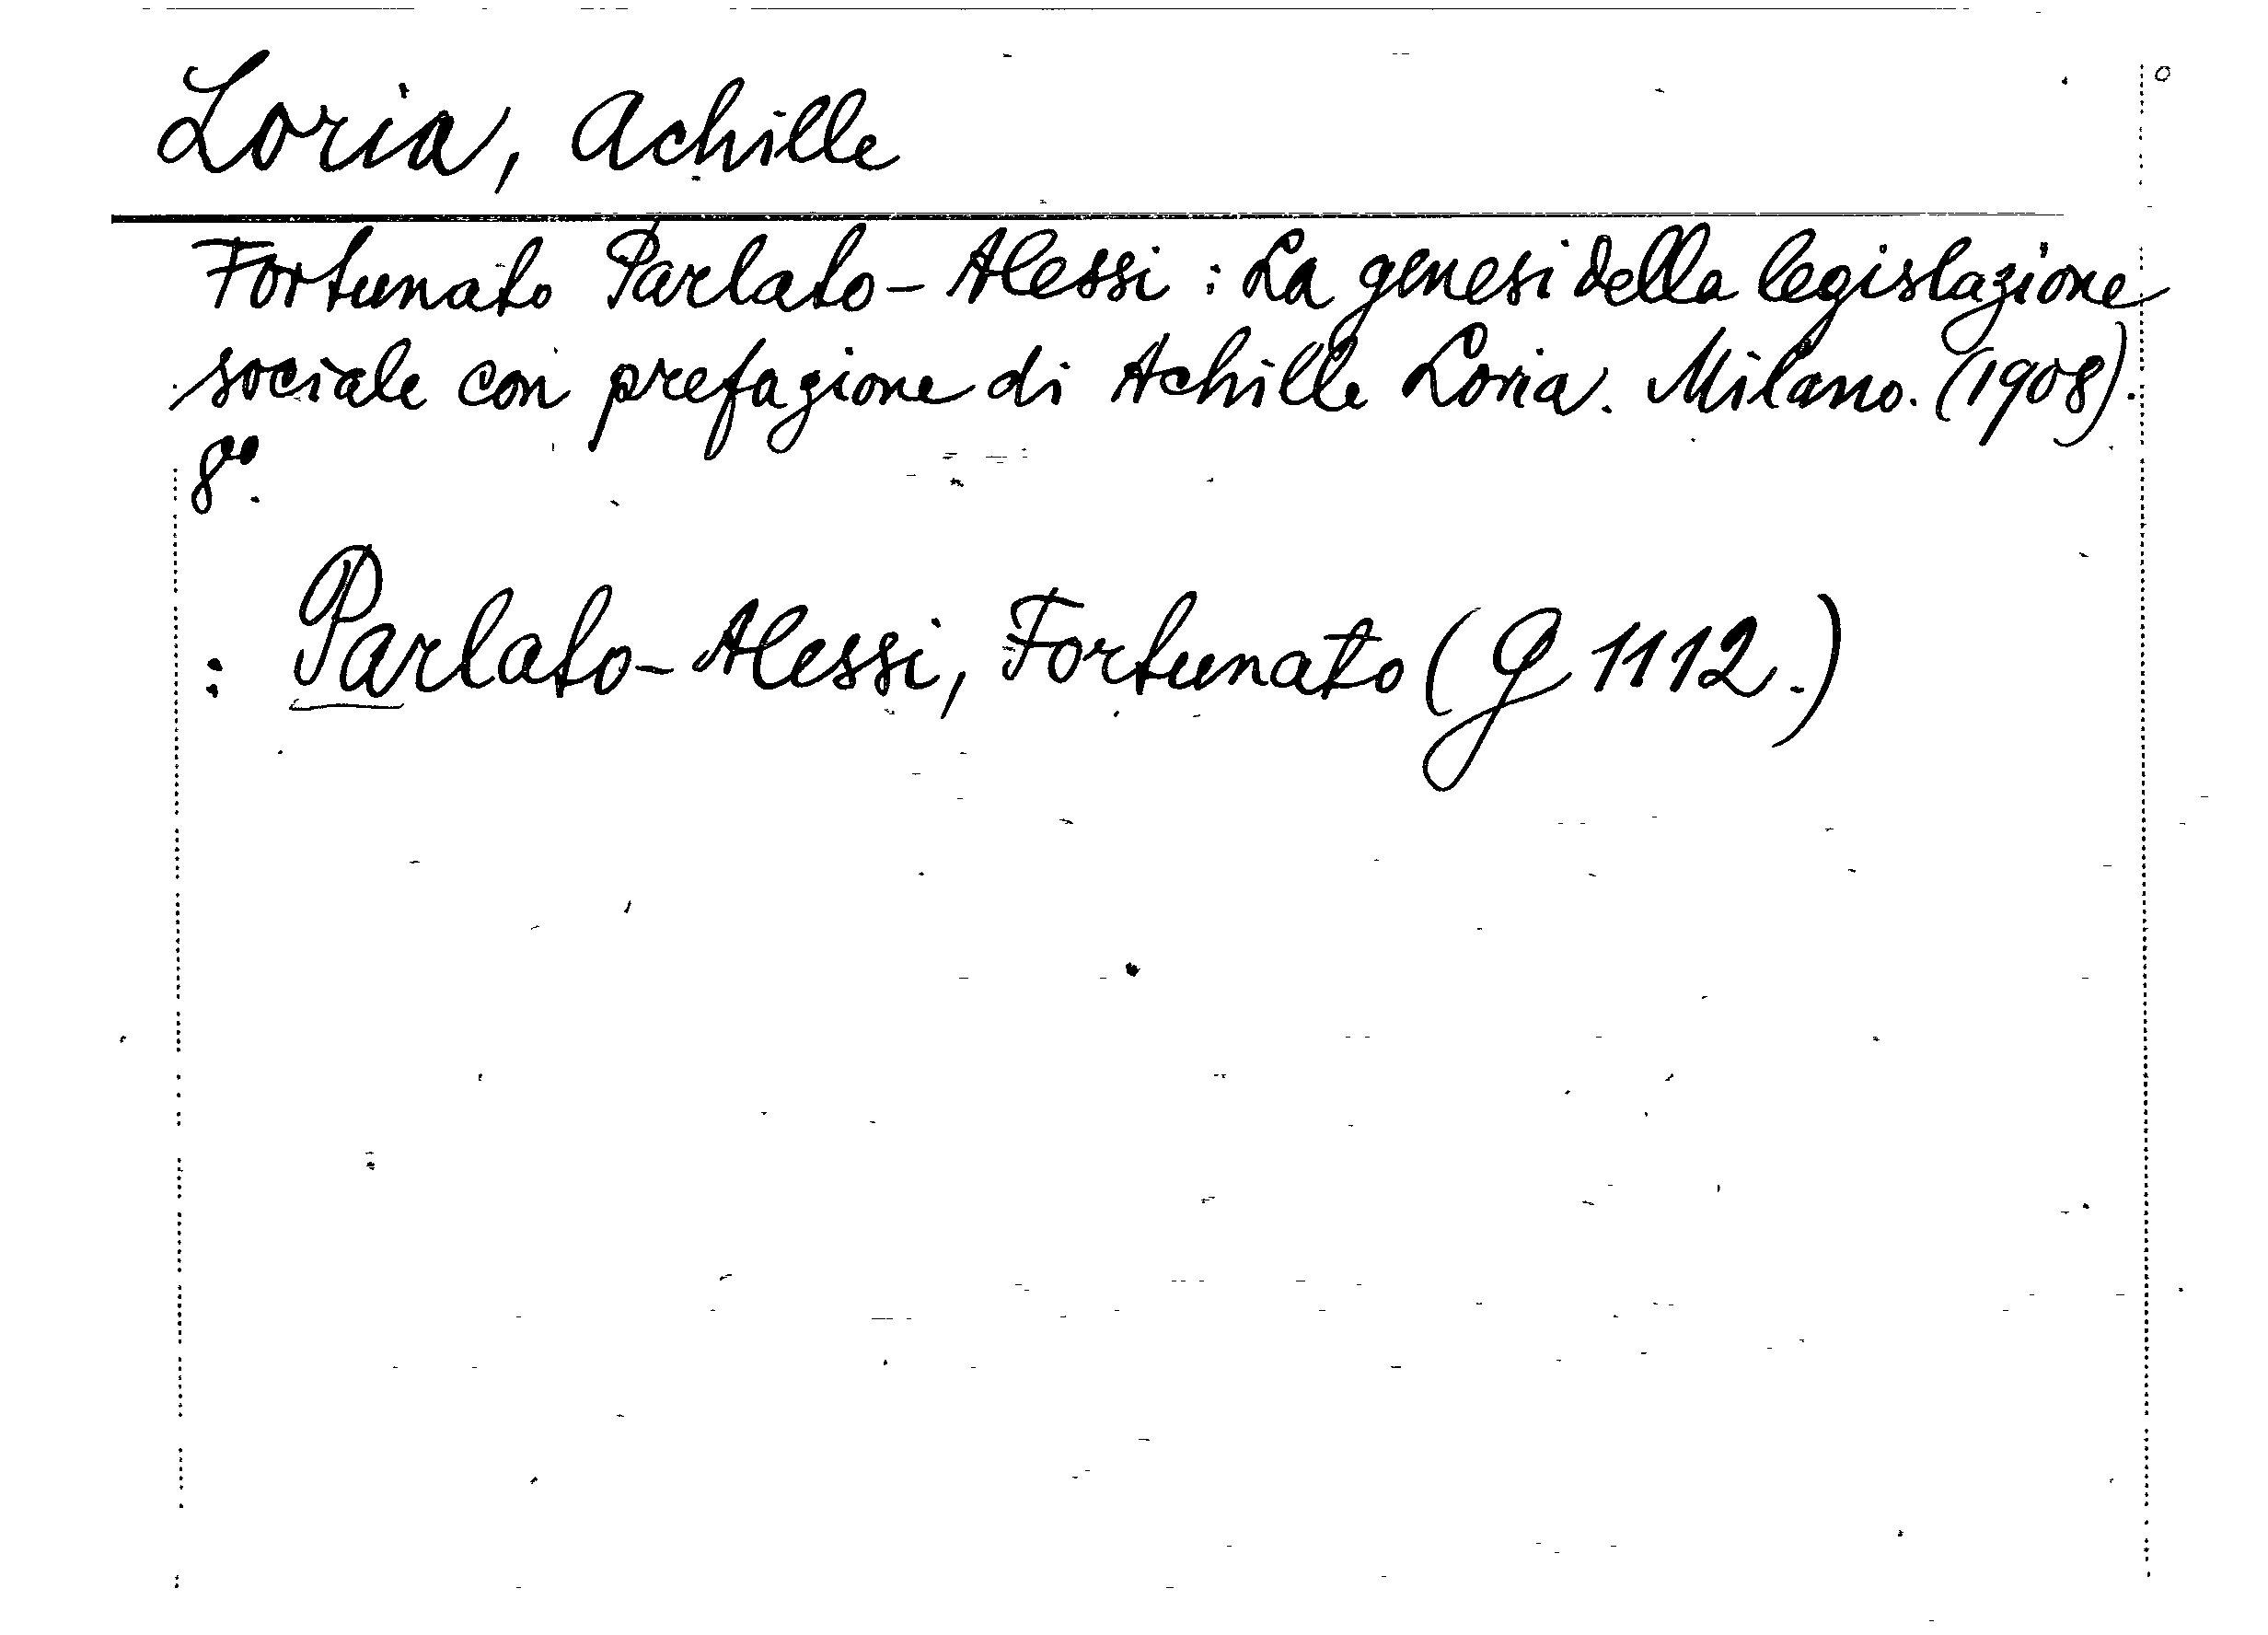 Loria, Achille
Fortunato Parlato-Alessi: La genesi della legislazione
sociale con prefazione di Achille Loria. Milano. (1908).
8º.
: Parlato-Alessi, Fortunato (G 1112.)